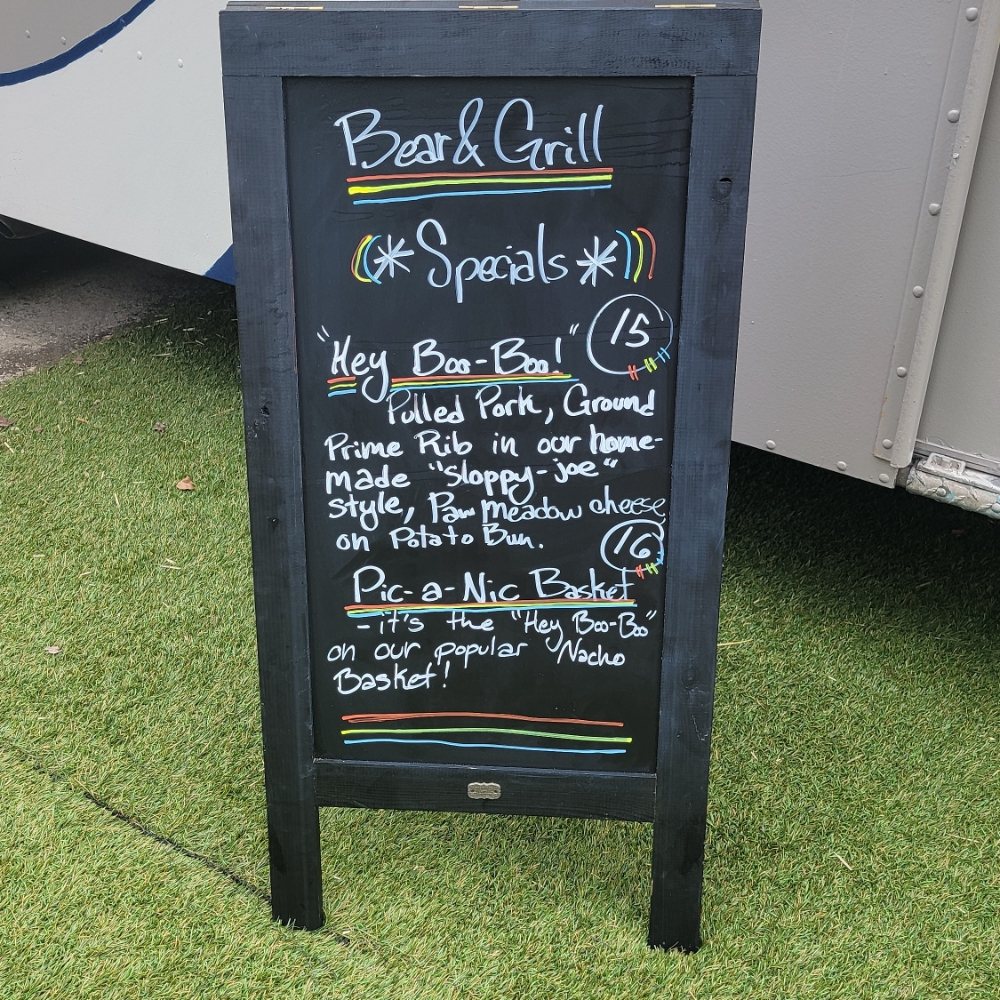 Bear & Grill
* Specials *
"Hey Boo-Boo!" 15
Pulled Pork, Ground
Prime Rib in our home-
made "sloppy-joe"
style, Paw meadow cheese
on Potato Bun. 16
Pic-a-Nic Basket
-it's the "Hey Boo-Boo"
on our popular Nacho
Basket!